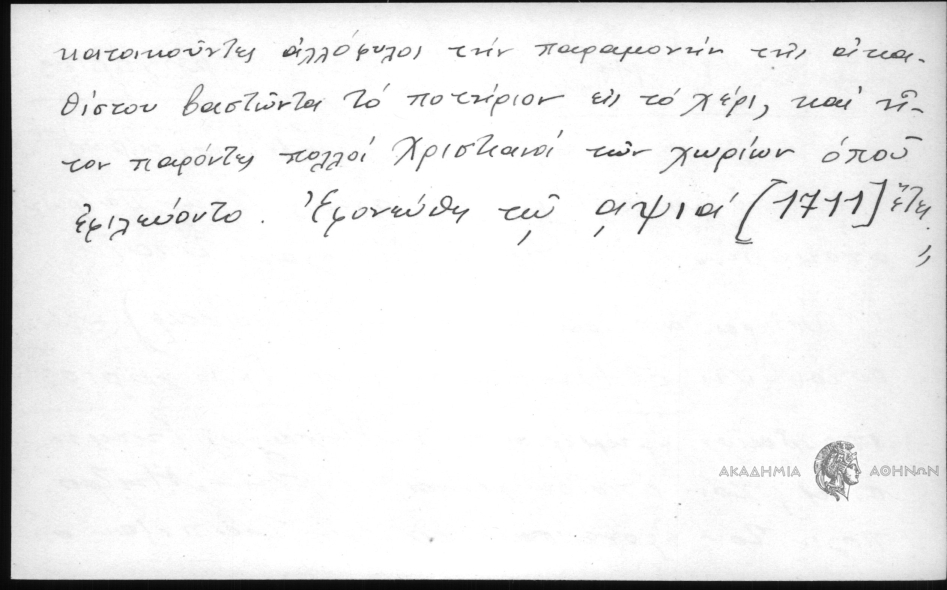 κατοικοῦντες ἀλλόφυλοι τήν παραμονήν τῆς ἀκα-
θίστου βαστῶντα τό ποτήριον εἰς τό χέρι, καί ἦ-
τον παρόντες πολλοί Χριστιανοί τῶν χωρίων ὁποῦ
ἐφιλεύοντο. Ἐφονεύθη τῷ ͵αψιά [1711] ἔτει
ΑΚΑΔΗΜΙΑ ΑΘΗΝΩΝ